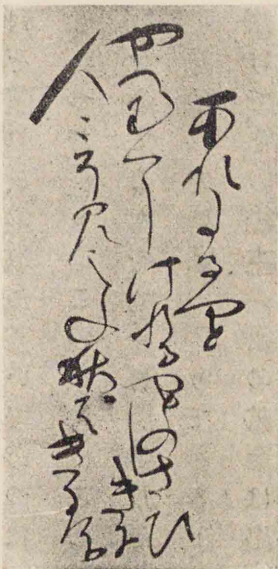 あれたるやと
やへむくらしけれるやとのさひ
しきに
人こそ見えね秋はきにけり